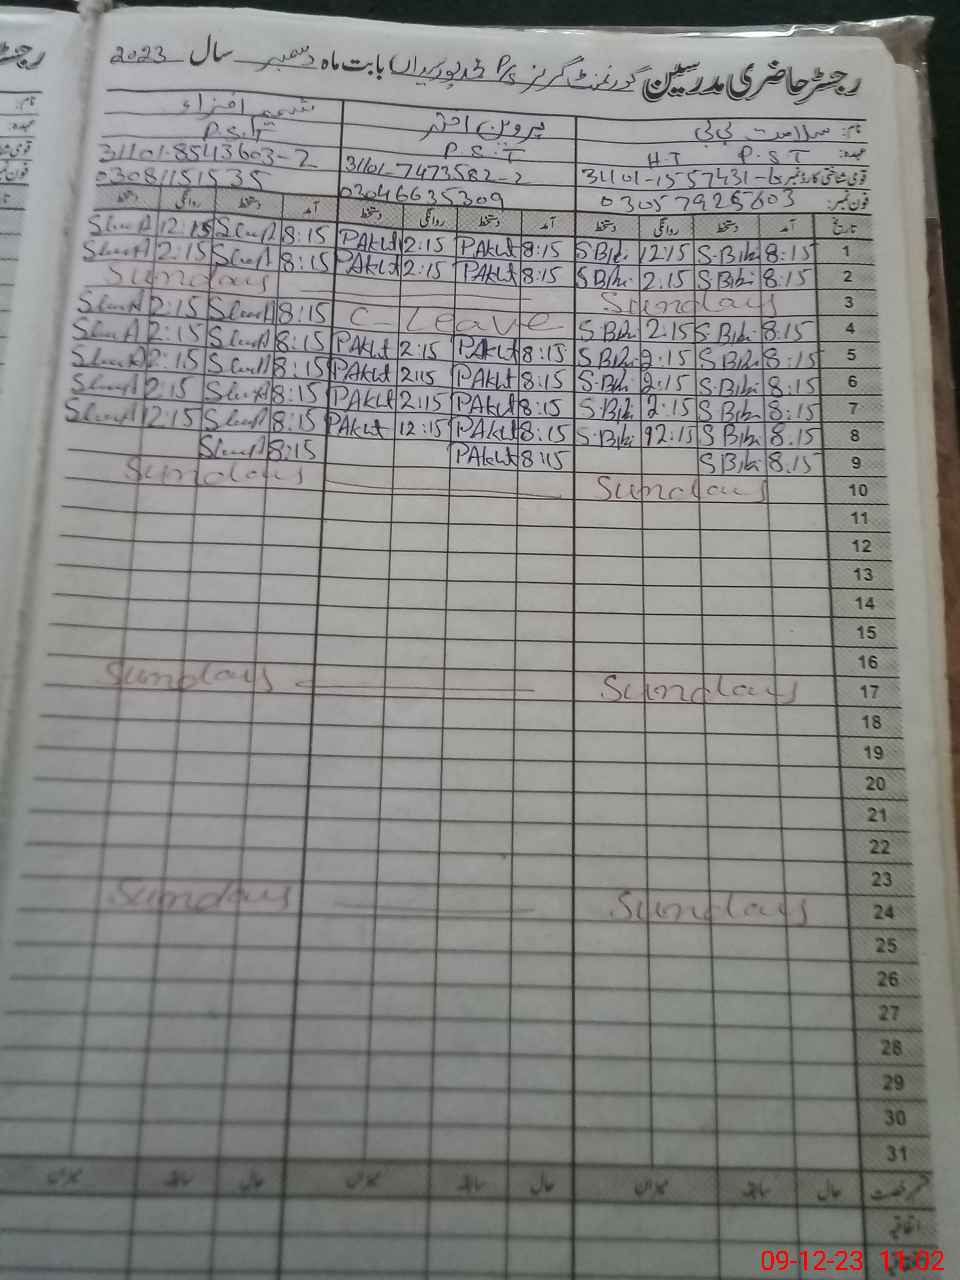 رجسٹر حاضری مدرسین گورنمنٹ گرلز P/S بابت ماہ دسمبر سال 2023
نام: سلامت بی بی پروین اختر شمیم افزاء
عہدہ: P.S.T H.T P.S.T P.S.T
قومی شناختی کارڈ نمبر 31101-1557431-6 31101-7473582-2 31101-8543603-2
فون نمبر: 03057925603 03046635309 03081151535
تاریخ آمد دستخط روانگی دستخط آمد دستخط روانگی دستخط آمد دستخط روانگی دستخط
1 8:15 S.Bibi 12:15 S.Bibi 8:15 PAkht 12:15 PAkht 8:15 12:15
2 8:15 S.Bibi 2:15 S.Bibi 8:15 PAkht 2:15 PAkht 8:15 2:15
3 Sunday Sunday
4 8:15 S.Bibi 2:15 S.Bibi C-Leave 8:15 2:15
5 8:15 S.Bibi 2:15 S.Bibi 8:15 PAkht 2:15 PAkht 8:15 2:15
6 8:15 S.Bibi 2:15 S.Bibi 8:15 PAkht 2:15 PAkht 8:15 2:15
7 8:15 S.Bibi 2:15 S.Bibi 8:15 PAkht 2:15 PAkht 8:15 2:15
8 8:15 S.Bibi 12:15 S.Bibi 8:15 PAkht 12:15 PAkht 8:15 12:15
9 8:15 S.Bibi 8:15 PAkht 8:15
10 Sunday Sunday
11
12
13
14
15
16
17 Sunday Sunday
18
19
20
21
22
23
24 Sunday Sunday
25
26
27
28
29
30
31
حال سابقہ میزان حال سابقہ میزان حال سابقہ میزان
اتفاقیہ
09-12-23 11:02